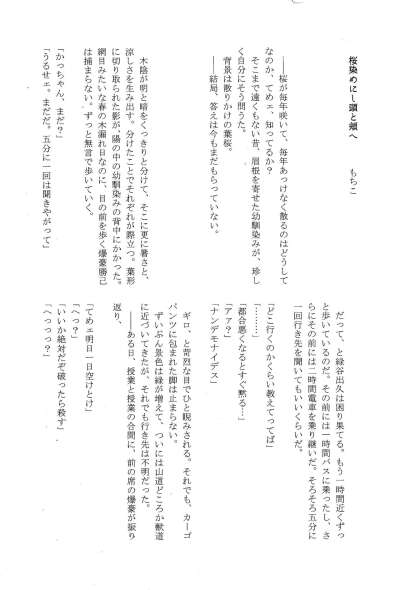 桜染めにし頭と頰へ
もちこ
――桜が毎年咲いて、毎年あっけなく散るのはどうして
なのか、てめェ、知ってるか?
そこまで遠くもない昔、眉根を寄せた幼馴染みが、珍し
く自分にそう問うた。
背景は散りかけの葉桜。
――結局、答えは今もまだもらっていない。
木陰が明と暗をくっきりと分けて、そこに更に暑さと、
涼しさを生み出す。分けたことでそれぞれが際立つ。葉形
に切り取られた影が、陽の中の幼馴染みの背中にかかった。
網目みたいな春の木漏れ日なのに、目の前を歩く爆豪勝己
は捕まらない。ずっと無言で歩いていく。
「かっちゃん、まだ?」
「うるせェ。まだだ。五分に一回は聞きやがって」
だって、と緑谷出久は困り果てる。もう一時間近くずっ
と歩いているし、その前には一時間バスに乗ったし、さ
らにその前には二時間電車を乗り継いだ。そろそろ五分に
一回行き先を聞いてもいいくらいだ。
「どこ行くのかくらい教えてってば」
「………」
「都合悪くなるとすぐ黙る…」
「アァ?」
「ナンデモナイデス」
ギロ、と苛烈な目でひと睨みされる。それでも、カーゴ
パンツに包まれた脚は止まらない。
ずいぶん景色は緑が増えて、ついには山道どころか獣道
に近づいてきたが、それでも行き先は不明だった。
――ある日、授業と授業の合間に、前の席の爆豪が振り
返り、
「てめェ明日一日空けとけ」
「へっ?」
「いいか絶対だぞ破ったら殺す」
「へっっっ?」